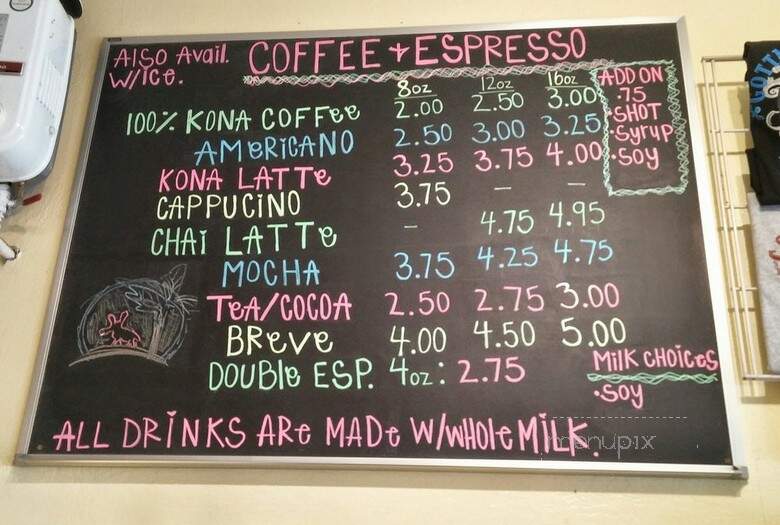 Also Avail. W/Ice.
COFFEE + ESPRESSO
8oz 12oz 16oz
100% KONA COFFee 2.00 2.50 3.00
AMERICANO 2.50 3.00 3.25
KONA LATTe 3.25 3.75 4.00
CAPPUCINO 3.75 — —
CHAI LATTe - 4.75 4.95
MOCHA 3.75 4.25 4.75
TeA/COCOA 2.50 2.75 3.00
BReve 4.00 4.50 5.00
DOUBLe ESP. 4oz: 2.75
ADD ON
.75
•SHOT
•Syrup
•SOY
MilK CHOICeS
•SOY
ALL DRINKS ARe MADe W/WHOLe MILK.
menupix